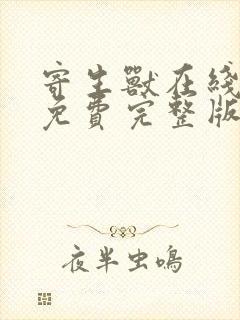 寄生獸在綫
免費完整版
夜半虫鳴